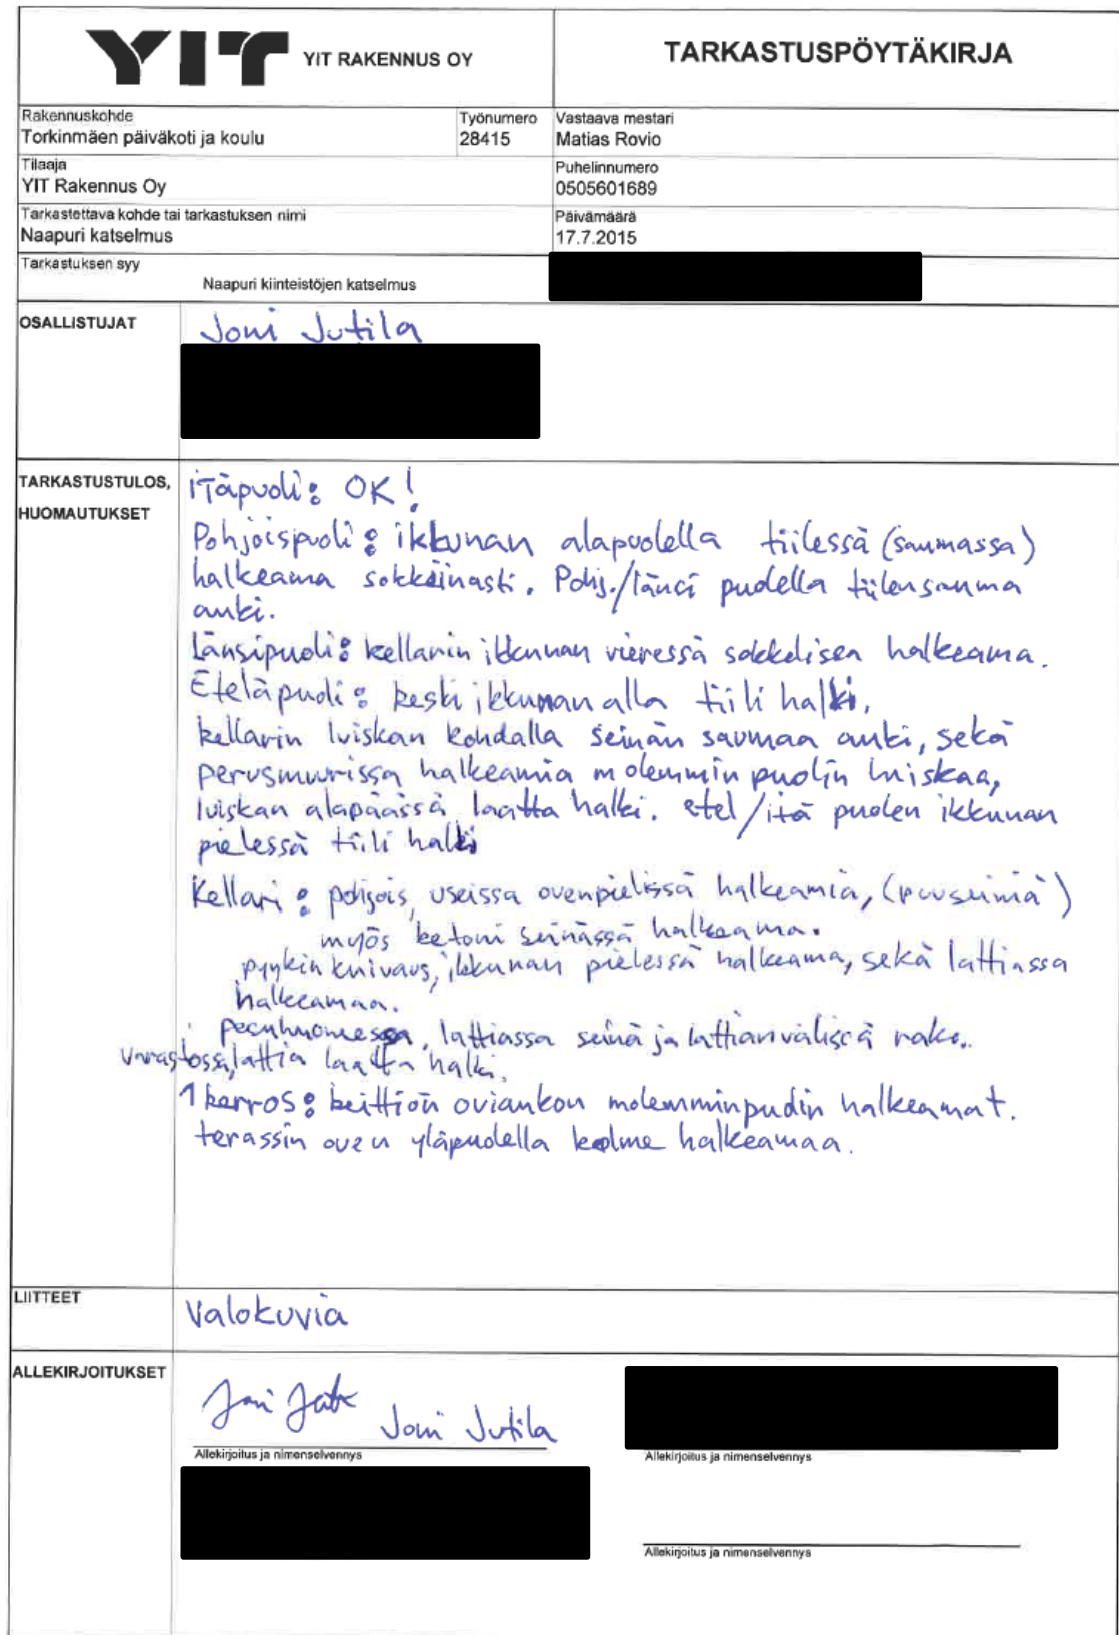 YIT YIT RAKENNUS OY
TARKASTUSPÖYTÄKIRJA
Rakennuskohde
Torkinmäen päiväkoti ja koulu
Työnumero
28415
Vastaava mestari
Matias Rovio
Tilaaja
YIT Rakennus Oy
Puhelinnumero
0505601689
Tarkastettava kohde tai tarkastuksen nimi
Naapuri katselmus
Päivämäärä
17.7.2015
Tarkastuksen syy
Naapuri kiinteistöjen katselmus
OSALLISTUJAT
Joni Jutila
TARKASTUSTULOS,
HUOMAUTUKSET
iTäpuoli: OK!
Pohjoispuoli: ikkunan alapuolella tiilessä (saumassa)
halkeama sokkeliin asti. Pohj./länsi puolella tiilensauma
auki.
Länsipuoli: kellarin ikkunan vieressä sokkelissa halkeama.
Eteläpuoli: keski ikkunan alla tiili halki,
kellarin luiskan kohdalla seinän saumaa auki, sekä
perusmuurissa halkeamia molemmin puolin luiskaa,
luiskan alapäässä laatta halki. etel/itä puolen ikkunan
pielessä tiili halki
Kellari: pohjois, useissa ovenpielissä halkeamia, (puuseiniä)
myös betoni seinässä halkeama.
pyykin kuivaus, ikkunan pielessä halkeama, sekä lattiassa
halkeamaa.
pesuhuoneessa, lattiassa seinä ja lattian välissä rako.
varastossa, lattia laatta halki.
1 kerros: keittiön oviaukon molemminpuolin halkeamat.
terassin oven yläpuolella kolme halkeamaa.
LIITTEET
Valokuvia
ALLEKIRJOITUKSET
Joni Jutila
Allekirjoitus ja nimenselvennys
Allekirjoitus ja nimenselvennys
Allekirjoitus ja nimenselvennys